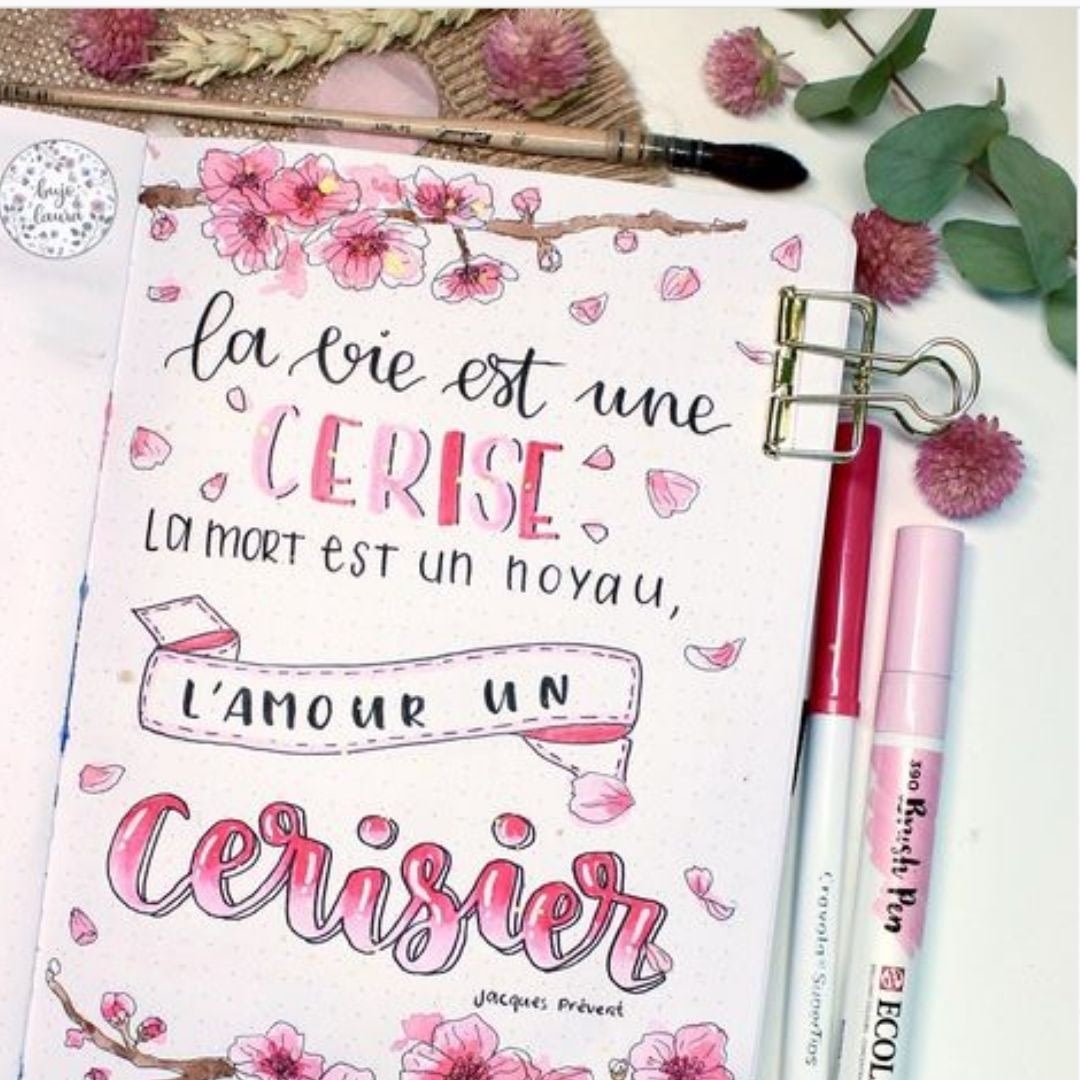 bujo
laura
la vie est une
CERISE
La mort est un noyau,
L'AMOUR UN
Cerisier
Jacques Prévert
390 Brush Pen
Crayola SuperTips
ECOL